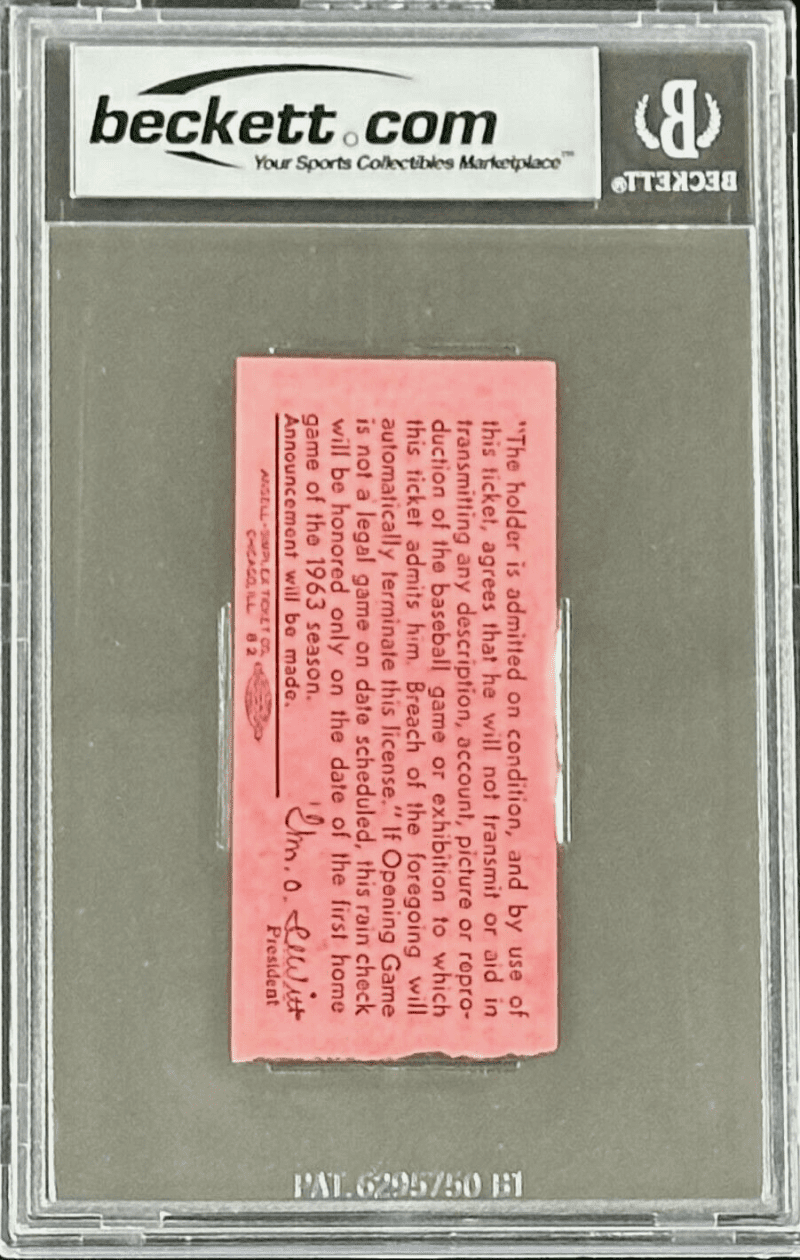 beckett.com
Your Sports Collectibles Marketplace™
BECKETT®
"The holder is admitted on condition, and by use of
this ticket, agrees that he will not transmit or aid in
transmitting any description, account, picture or repro-
duction of the baseball game or exhibition to which
this ticket admits him. Breach of the foregoing will
automatically terminate this license." If Opening Game
is not a legal game on date scheduled, this rain check
will be honored only on the date of the first home
game of the 1963 season.
Announcement will be made.
Wm. O. DeWitt
President
ANSELL-SIMPLEX TICKET CO.
CHICAGO, ILL. 82
PAT.6295750 B1